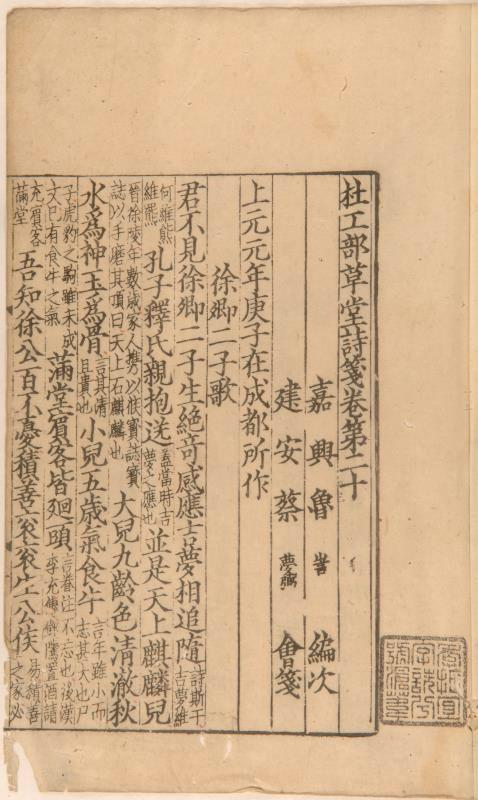 杜工部草堂詩箋卷第二十
嘉興魯訔編次
建安蔡夢弼會箋
上元元年庚子在成都所作
徐卿二子歌
君不見徐卿二子生絶奇感應吉夢相追隨詩斯干吉夢維
何維熊維羆孔子釋氏親抱送蓋當時吉夢之應也並是天上麒麟兒
晉徐陵年數歲家人携以候寳誌寳誌以手磨其頂曰天上石麒麟也大兒九齡色清澈秋
水爲神玉爲骨言其清且貴也小兒五歳氣食牛言年雖小而志其大也尸
子虎豹之駒雖未成文已有食牛之氣滿堂賔客皆廻頭言眷注不忘也後漢李充傳
充賔客滿堂吾知徐公百不憂積善衮衮生公侯易積善之家必